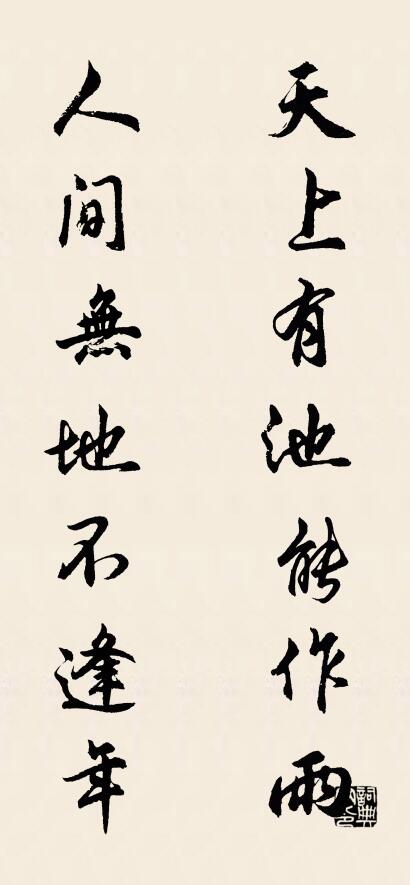 天上有池能作雨
人间無地不逢年